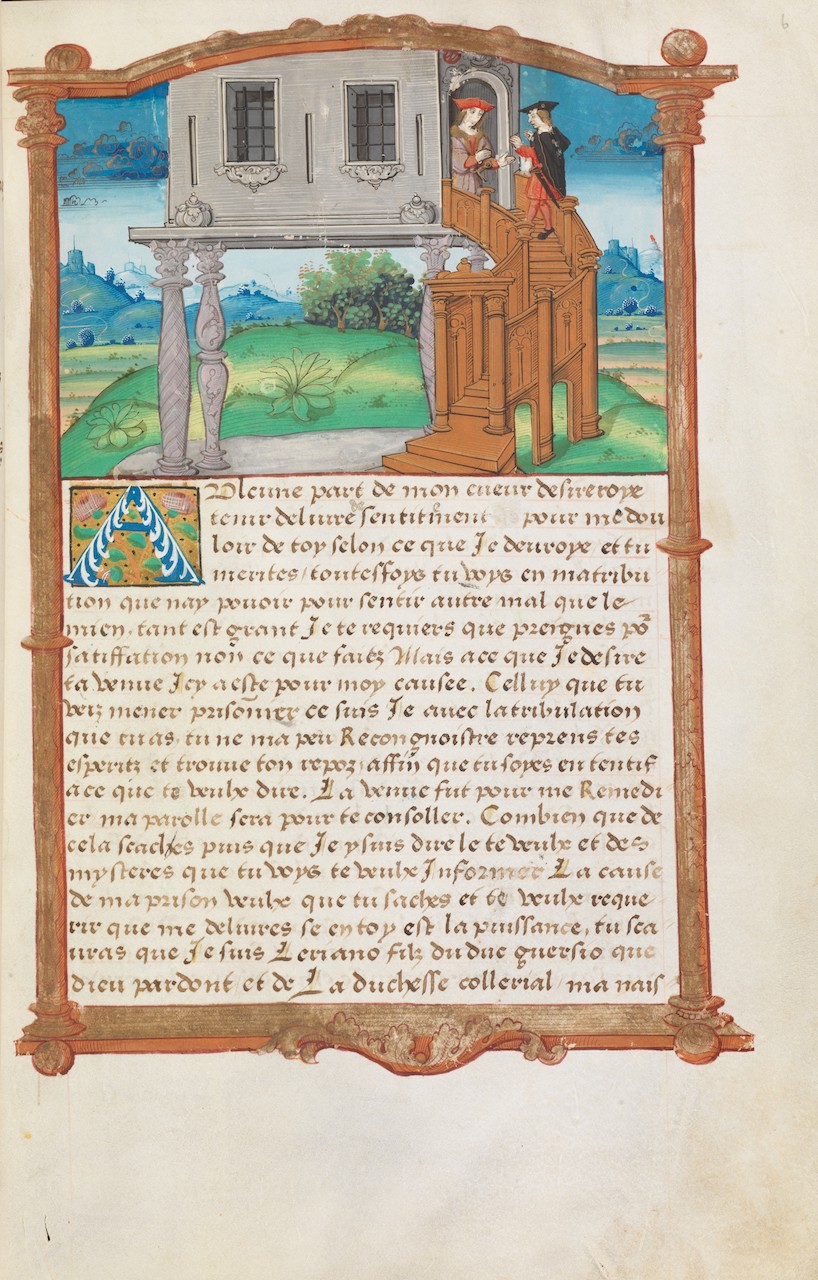 6
AUlcune part de mon cueur desireroye
tenir delivre sentitm̃ent pour me dou
loir de toy selon ce que Je deuroye et tu
merites / toutesfoys tu voys en matribu
tion que nay pouoir pour sentir autre mal que le
mien. tant est grant Je te requiers que preignes põ
satiffation non ce que faitz Mais ace que Je desire
ta venue Jcy a este pour moy causee. Celluy que tu
veiz mener prisonnier ce suis Je avec latribulation
que tu as. tu ne ma peu Recongnoistre reprens tes
esperitz et trouue ton repoz / affin que tu soyes en tentif
a ce que te veulx dire. La venue fut pour me Remedi
er ma parolle sera pour te consoller. Combien que de
cela scaches puis que Je y suis dire le te veulx et des
mysteres que tu voys te veulx Informer La cause
de ma prison veulx que tu saches et te veulx reque
rir que me deliures se en toy est la puissance, tu sca
uras que Je suis Leriano filz du duc guersio que
dieu pardont et de La duchesse collerial / ma nais